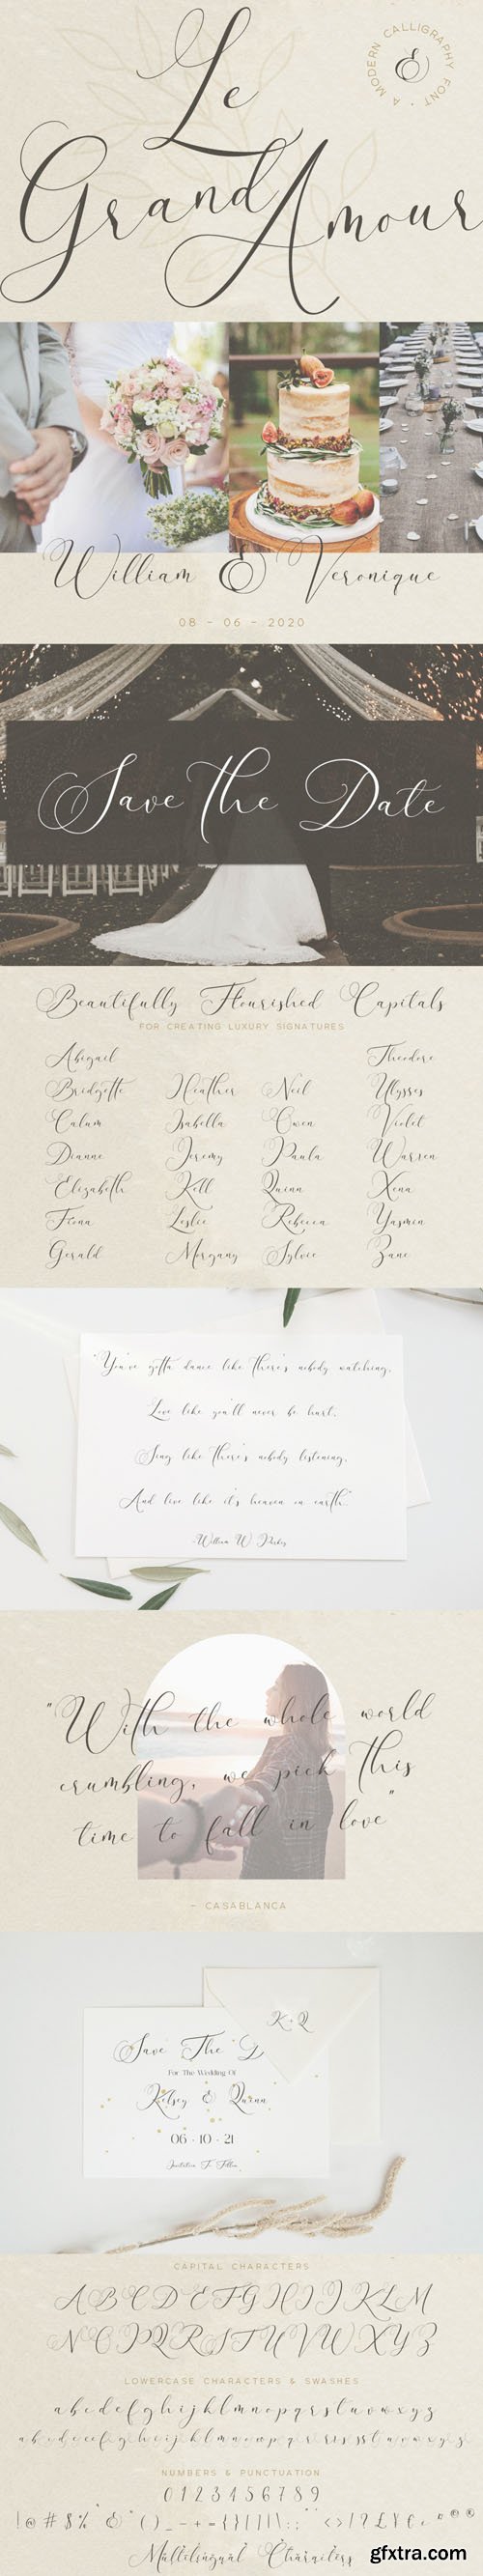 Le
A MODERN CALLIGRAPHY FONT •
&
Grand Amour
William & Veronique
08 - 06 - 2020
Save the Date
Beautifully Flourished Capitals
FOR CREATING LUXURY SIGNATURES
Abigail Theodore
Bridgette Heather Neil Ulysses
Calum Isabella Owen Violet
Dianne Jeremy Paula Warren
Elizabeth Kell Quinn Xena
Fiona Leslie Rebecca Yasmin
Gerald Morgany Sylvie Zane
"You've gotta dance like there's nobody watching,
Love like you'll never be hurt,
Sing like there's nobody listening,
And live like it's heaven on earth."
William W Purkey
"With the whole world
crumbling, we pick this
time to fall in love"
- CASABLANCA
K & Q
Save The D
For The Wedding Of
Kelsey & Quinn
06 - 10 - 21
Invitation To Follow
CAPITAL CHARACTERS
A B C D E F G H I J K L M
N O P Q R S T U V W X Y Z
LOWERCASE CHARACTERS & SWASHES
a b c d e f g h i j k l m n o p q r s t u v w x y z
NUMBERS & PUNCTUATION
0 1 2 3 4 5 6 7 8 9
Multilingual Characters
gfxtra.com